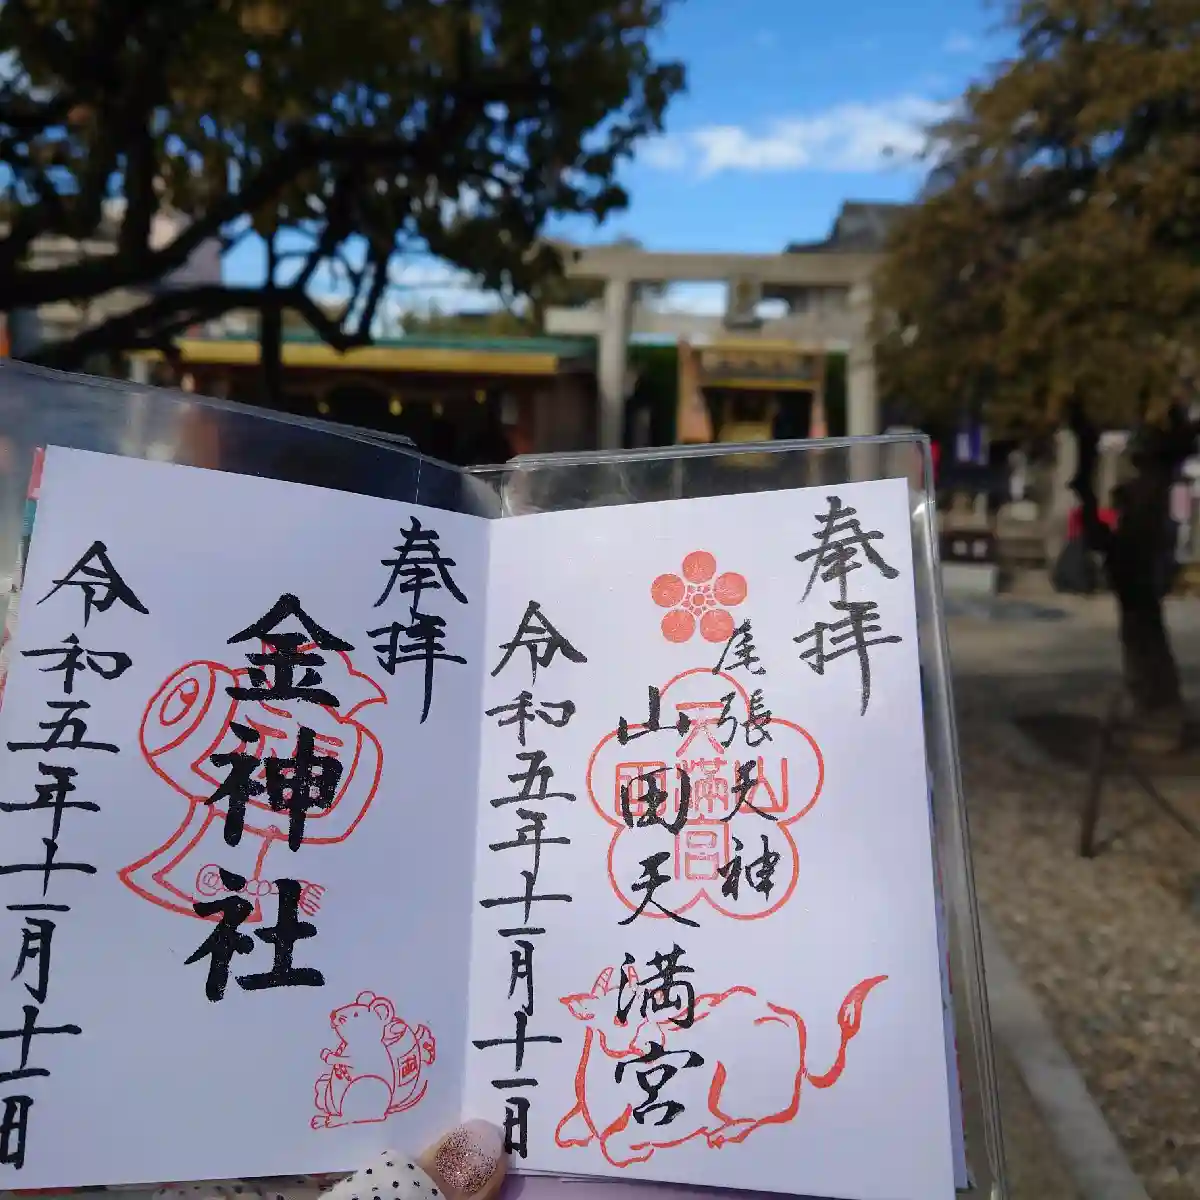 奉拝
尾張天神
山田天満宮
山田天満宮
令和五年十一月十一日
奉拝
金神社
令和五年十一月十一日